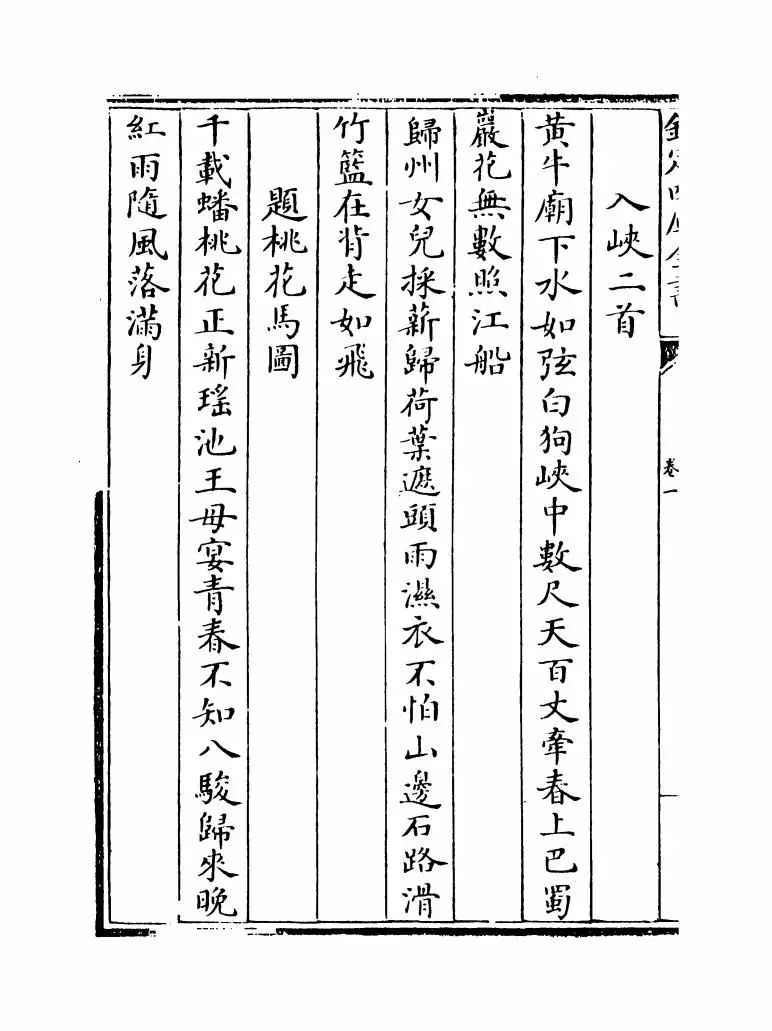 欽定四庫全書
卷一
入峽二首
黄牛廟下水如弦白狗峽中數尺天百丈牽春上巴蜀
巖花無數照江船
歸州女兒採薪歸荷葉遮頭雨濕衣不怕山邊石路滑
竹籃在背走如飛
題桃花馬圖
千載蟠桃花正新瑶池王母宴青春不知八駿歸來晚
紅雨隨風落滿身